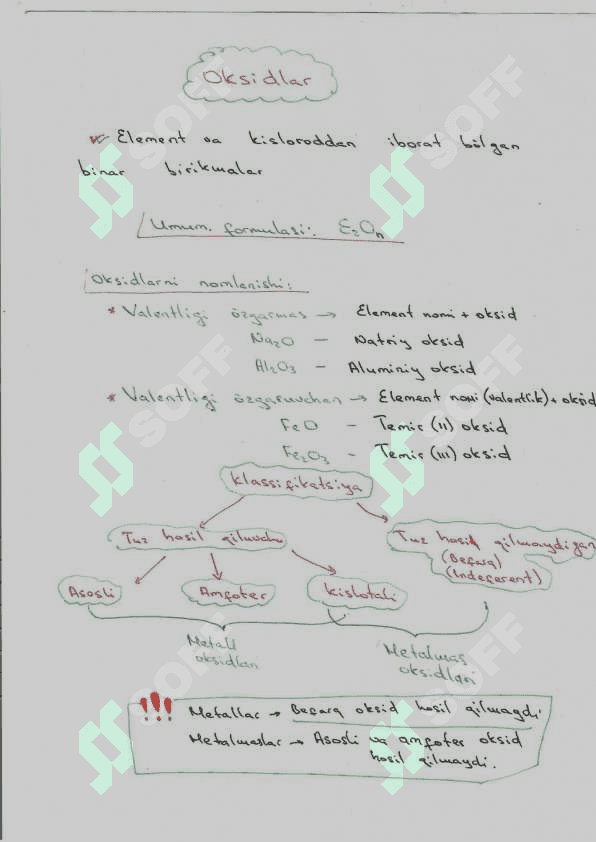 Oksidlar
Element va kisloroddan iborat bölgan
binar birikmalar
Umum. formulasi: E₂On
Oksidlarni nomlanishi:
* Valentligi özgarmas → Element nomi + oksid
Na₂O – Natriy oksid
Al₂O₃ – Aluminiy oksid
* Valentligi özgaruvchan → Element nomi (valentlik) + oksid
FeO – Temir (II) oksid
Fe₂O₃ – Temir (III) oksid
Klassifikatsiya
Tuz hosil qiluvchi
Tuz hosil qilmaydigan
(Befarq)
(Indeferent)
Asosli
Amfoter
Kislotali
Metall
oksidlari
Metalmas
oksidlari
!!! Metallar → Befarq oksid hosil qilmaydi.
Metalmaslar → Asosli va amfoter oksid
hosil qilmaydi.
SOFF
SOFF
SOFF
SOFF
SOFF
SOFF